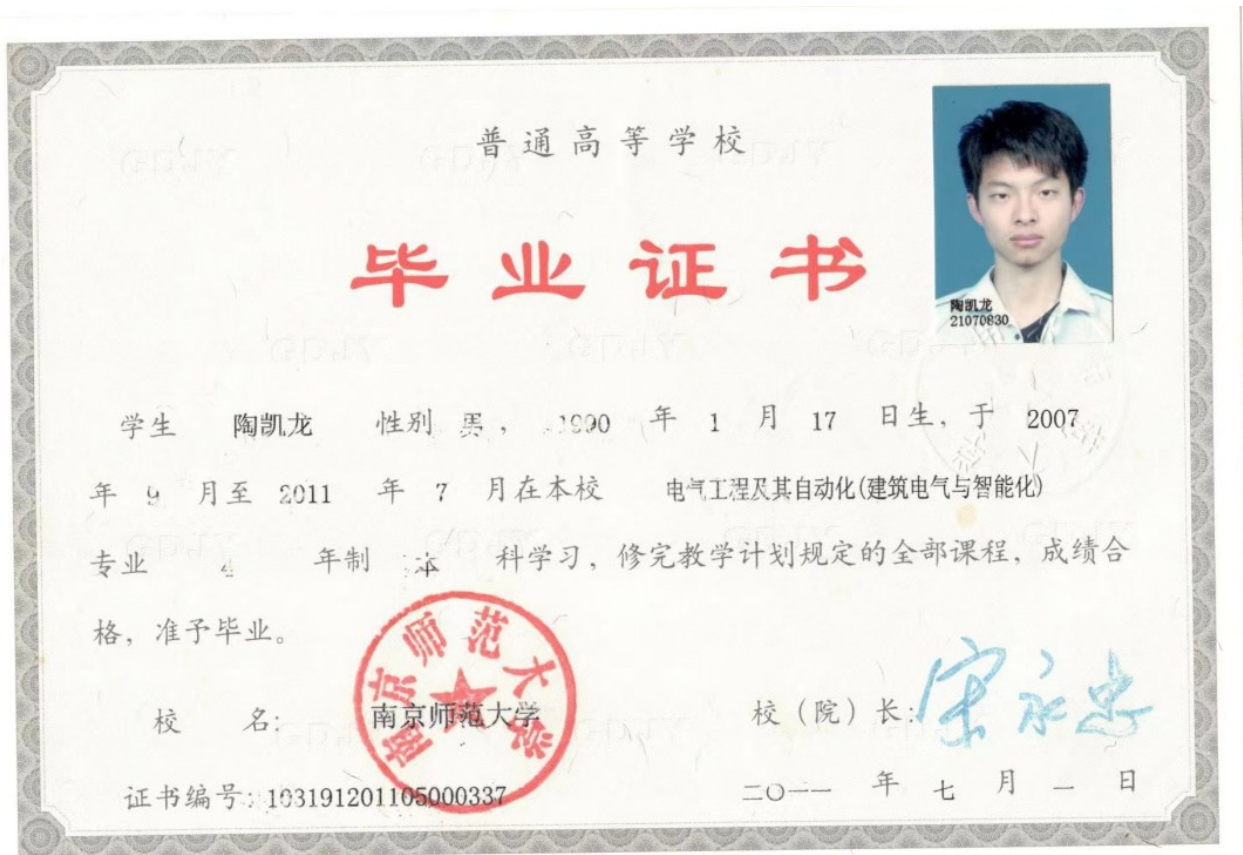 普通高等学校
毕业证书
陶凯龙
21070830
学生 陶凯龙 性别 男, 1990 年 1 月 17 日生, 于 2007
年 9 月至 2011 年 7 月在本校 电气工程及其自动化(建筑电气与智能化)
专业 4 年制 本 科学习, 修完教学计划规定的全部课程, 成绩合
格, 准予毕业。
南京师范大学
校 名: 南京师范大学 校(院)长: 宋永忠
证书编号: 103191201105000337 二〇一一 年 七 月 一 日